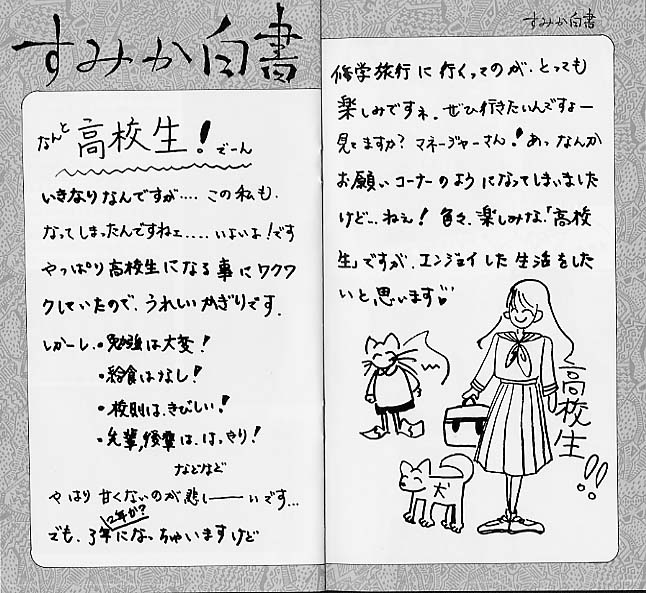 すみか白書
なんと高校生!でーん
いきなりなんですが....この私も、
なってしまったんですねェ.....いよいよ!です
やっぱり高校生になる事にワクワ
クしていたので、うれしいかぎりです。
しかーし、・勉強は大変!
・給食はなし!
・校則は、きびしい!
・先輩、後輩は、はっきり!
などなど
やはり甘くないのが悲し――いです...
2年か?
でも、3年になっちゃいますけど
すみか白書
修学旅行に行くってのが、とっても
楽しみですネ。ぜひ行きたいんですよー
見てますか?マネージャーさん!あっなんか
お願いコーナーのようになってしまいました
けど..ねぇ!色々、楽しみな「高校
生」ですが、エンジョイした生活をした
いと思います
高校生!!
犬